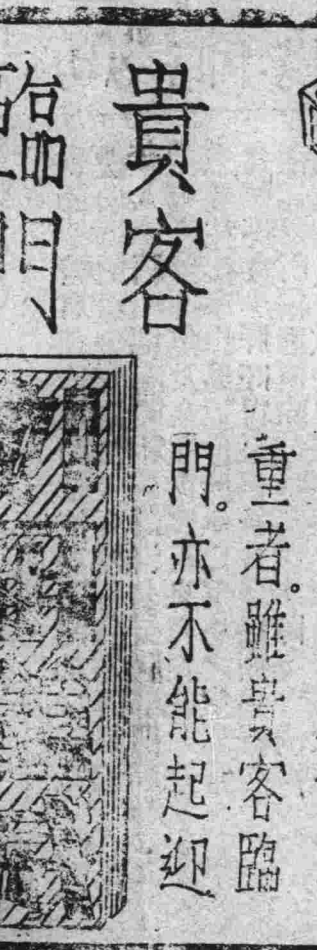 貴客
臨門
重者。雖貴客臨
門。亦不能起迎